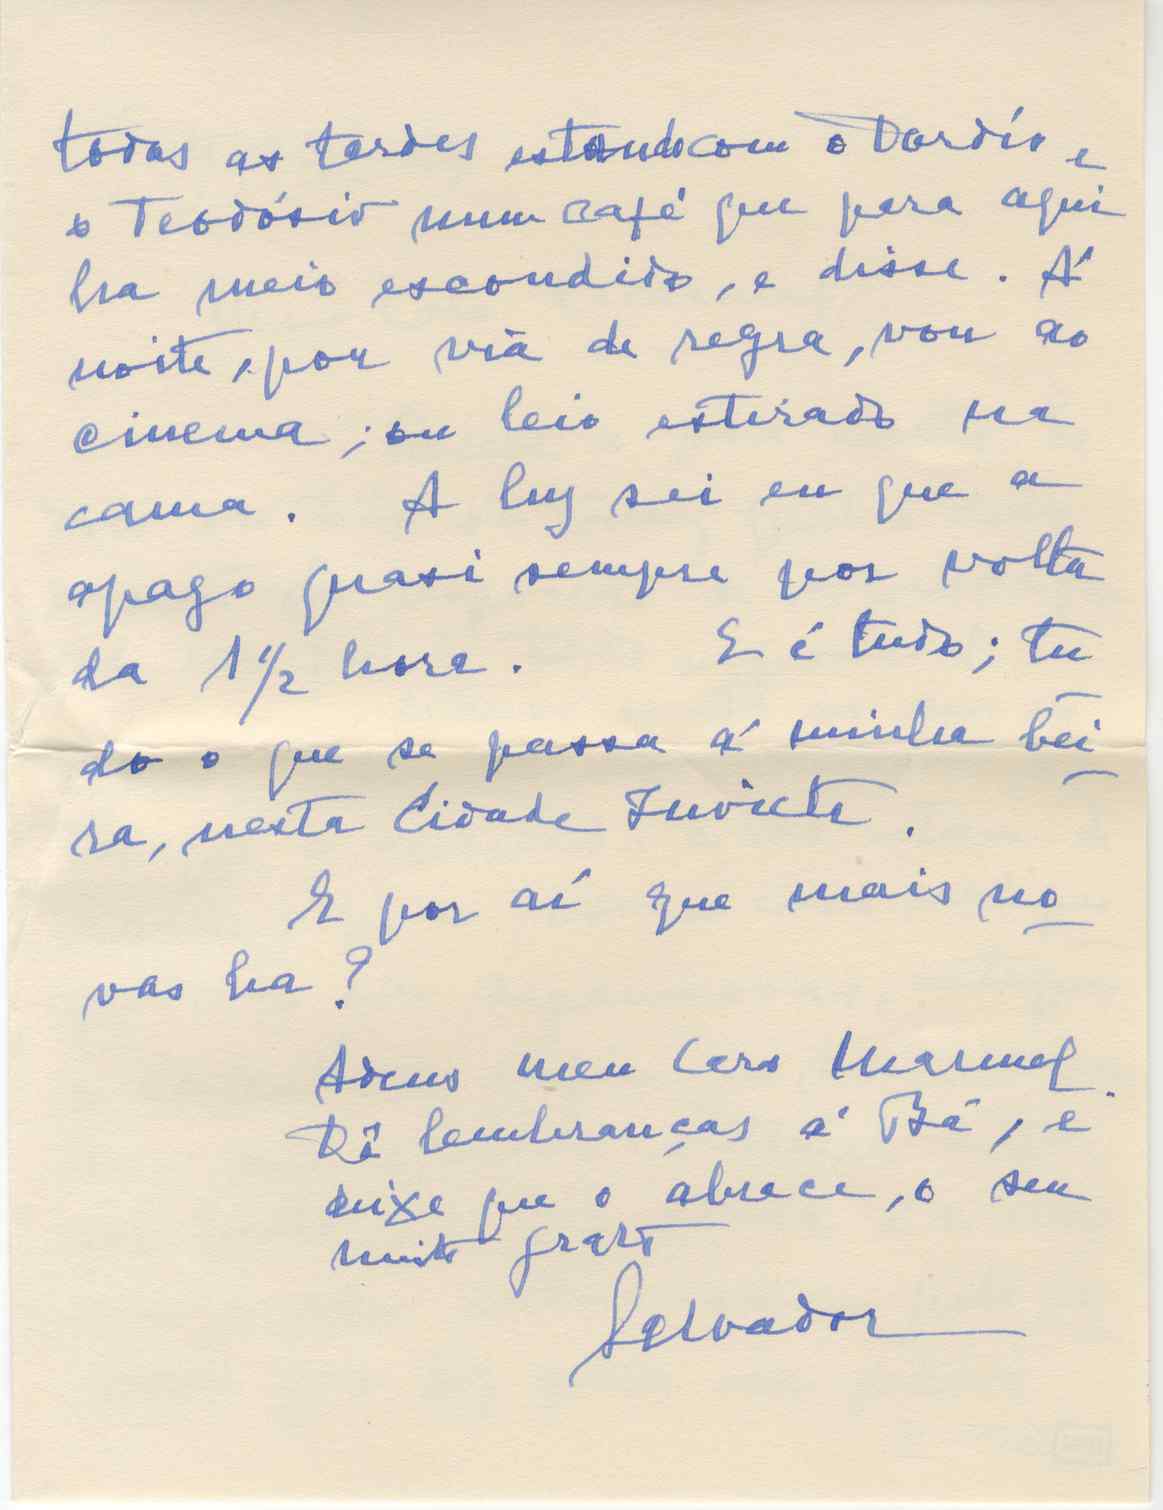 todas as tardes estando com o Dordio e
o Teodósio num café que para aqui
ha meio escondido, e disse. Á
noite, por via de regra, vou ao
cinema; ou leio estirado na
cama. A luz sei eu que a
apago quasi sempre por volta
da 1 1/2 hora. E é tudo; tu
do o que se passa á minha bei
ra, nesta Cidade Invicta.
E por aí que mais no
vas ha?
Adeus meu Caro Manuel.
Dê lembranças á Bá, e
deixe que o abrace, o seu
muito grato
Salvador